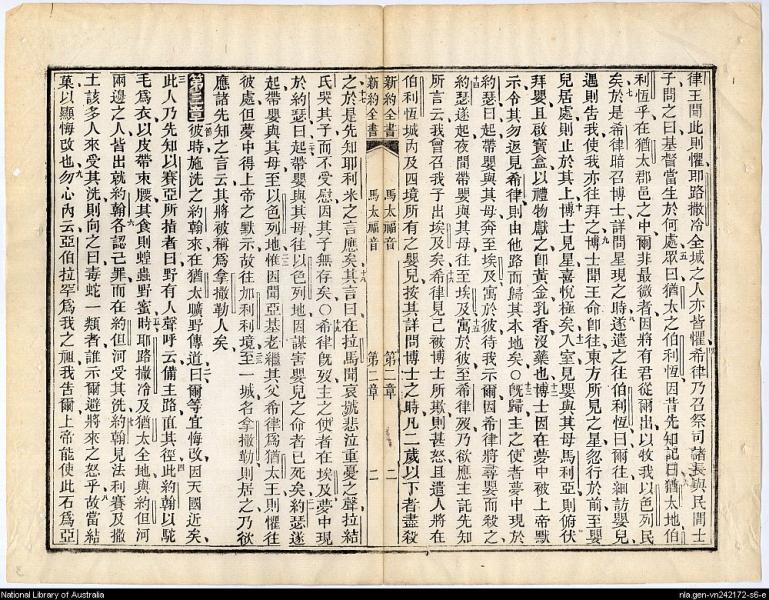 律王聞此則懼即路撒冷全城之人亦皆懼希律乃召祭司諸長與民間士
子問之曰基督當生於何處眾曰猶太之伯利恆因昔先知記曰猶太地伯
利恆乎在猶太郡邑之中爾非最微者因將有君從爾出以牧我以色列民
矣於是希律暗召博士詳問星現之時遂遣之往伯利恆曰爾往細訪嬰兒
遇則告我使我亦往拜之博士聞王命卽往東方所見之星忽行於前至嬰
兒居處則止於其上博士見星喜悅極矣入室見嬰與其母馬利亞則俯伏
拜嬰且啟寶盒以禮物獻之卽黃金乳香沒藥也博士因在夢中被上帝默
示令其勿返見希律則由他路而歸其本地矣○旣歸主之使者夢中現於
約瑟曰起帶嬰與其母奔至埃及寓於彼待我示爾因希律將尋嬰而殺之
約瑟遂起夜間帶嬰與其母往至埃及寓於彼至希律歿乃欲應主託先知
所言云我曾召我子出埃及矣希律見己被博士所欺則甚怒且遣人將在
伯利恆城內及四境所有之嬰兒按其詳問博士之時凡二歲以下者盡殺
新約全書 馬太福音 第二章 二
新約全書 馬太福音 第二章 二
之於是先知耶利米之言應矣其言曰在拉馬聞哀號悲泣重憂之聲拉結
氏哭其子而不受慰因其子無存矣○希律旣歿主之使者在埃及夢中現
於約瑟曰起帶嬰與其母往以色列地因謀害嬰兒之命者已死矣約瑟遂
起帶嬰與其母至以色列地惟因聞亞基老繼其父希律爲猶太王則懼往
彼處但夢中得上帝之默示故往加利利境至一城名拿撒勒則居之乃欲
應諸先知之言云其將被稱爲拿撒勒人矣
第三章 彼時施洗之約翰來在猶太曠野傳道曰爾等宜悔改因天國近矣
此人乃先知以賽亞所指者曰野有人聲呼云備主路直其徑此約翰以駝
毛爲衣以皮帶束腰其食則蝗蟲野蜜時耶路撒冷及猶太全地與約但河
兩邊之人皆出就約翰各認己罪而在約但河受其洗約翰見法利賽及撒
土該多人來受其洗則向之曰毒蛇一類者誰示爾避將來之怒乎故當結
菓以顯悔改也勿心內云亞伯拉罕爲我之祖我告爾上帝能使此石爲亞
National Library of Australia
nla.gen-vn242172-s6-e